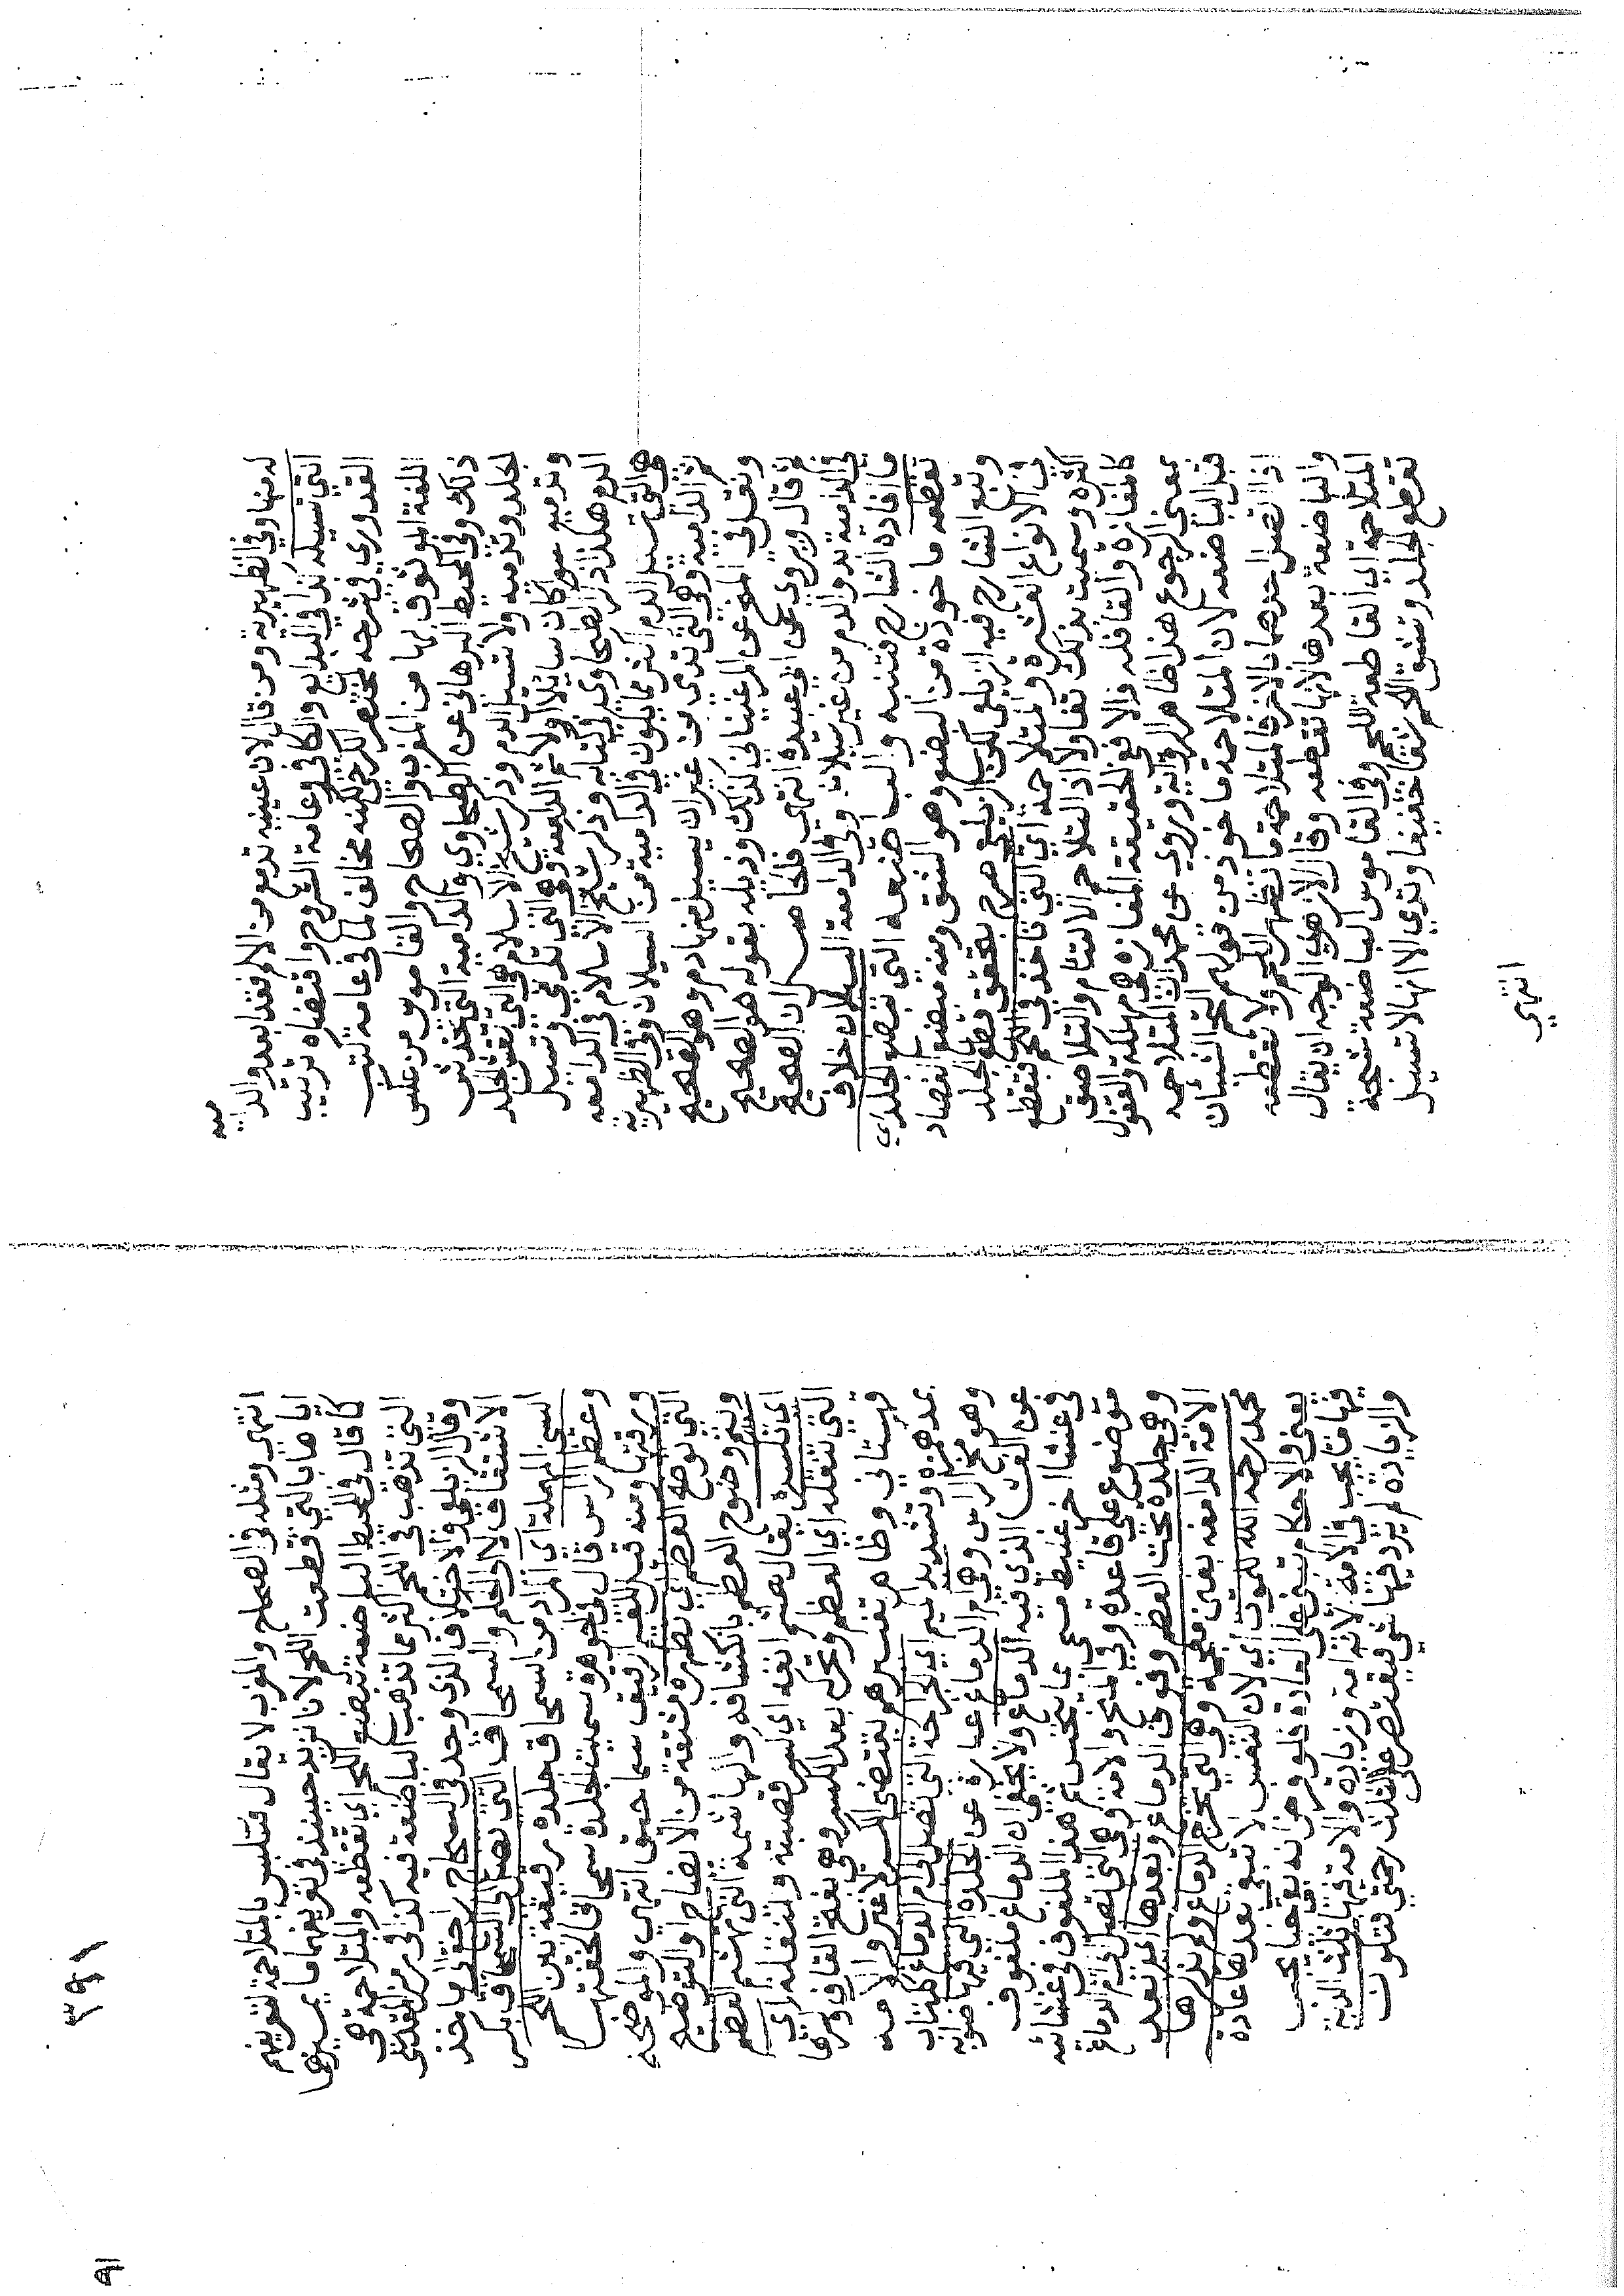 له منها وفي الظهيرية ومن قال لان عينيه تدمع من الالم فقد ابعد والدامية
التي تسيله كذا في البدايع والكافي وعامة الشروح واقتضاه ترتيب
القدوري في شرحه لمختصر الكرخي لكنه مخالف لما في عامة كتب
اللغة الموثوق بها من المغرب والصحاح والقاموس من عكس
ذلك وفي المحيط البرهاني عن الطحاوي والدامية التي تخدش
الجلد وتدميه ولا تسيل الدم وذكر شيخ الاسلام هي التي تقشر الجلد
وتدميه سوا كان سايلا اولا ثم الدامعة وهي التي تدمي وتسيل
الدم هكذا ذكر الطحاوي في كتابه وذكر شيخ الاسلام في الدامعه
هي التي تسيل الدم اكثر مما يكون في الدامية من السيلان وفي الظهيرية
ثم الدامية وهي التي تدمي من غير ان يسيل منها دم وهو الصحيح
ونقل في المنح عن المرغيناني كذلك وذيله بقوله هو الصحيح
ثم قال ويروي عن ابي عبيدة انتهي فالحاصل ان الصحيح
في الدامية بدو الدم من غير سيلانه وفي الدامعة السيلان خلاف
ما افاده الشارح فتنبه والباضعه التي تبضع الجلد اي
تقطعه ماخوذة من البضع وهو الشق ومنه مبضع الفصاد
وتبع الشارح فيه الزيلعي لكن الزيلعي صرح بتحقق قطع الجلد
في الانواع العشرة والمتلاحمة اي التي تاخذ في اللحم فتقطع
اكثره وسميت بذلك تفاولا اذ التلاحم الالتئام والتلاصق
كالمفازة والقافله والا ففي الحقيقة المفازه هي مهلكة والقفول
بمعني الرجوع هذا ظاهر الرواية وروي عن محمد ان المتلاحمه
قبل الباضعه لان المتلاحمة ماخوذ من قولهم التحم الشيئان
اذا اتصل احدهما بالاخر فالمتلاحمة ما تظهر اللحم ولا تقطعه
والباضعة بعدها لانها تقطعه وقال الازهري الوجه ان يقال
المتلاحمة اي القاطعة للحم وفي القاموس الباضعة شجة
تقطع الجلد وتشق اللحم شقا خفيفا وتدمي الا انها لا تسيل
انتهي
٣٩١
انتهي ومثله في الصحاح والمغرب لا يقال فتلتبس بالمتلاحمة لتعريفهم
اياها بالتي قطعت اللحم لانا نزيد حينئذ في تعريفهما ما يميزها
كما قال في المحيط الباضعة تبضع اللحم اي تقطعه والمتلاحمة هي
التي تذهب في اللحم اكثر مما تذهب الباضعة فيه كذا في رمز المقدسي
وقال الزيلعي والاختلاف الذي وجد في الشجاج راجع الي ماخذ
الاشتقاق لا الي الحكم والسمحاق التي تصل الي السمحاق بكسر
السين المهملة اي المراد من السمحاق جلده رقيقه بين اللحم
وعظم الراس قال في الجوهرة سميت الجلدة سمحاقا لخفتها
ورقتها ومنه قيل للغيم الرقيق سماحيق انتهي والموضحه
التي توضح العظم اي تظهره مشتقة من الايضاح والتوضيح
ويتم وضوح العظم بانكشافه والهاشمة التي تهشم العظم
اي تكسره يقال هشم انفه اي كسر قصبته والمنقلة اي
التي تنقله اي العظم وتحركه بعد الكسر وهي بفتح القاف وكسرها
قهستاني وظاهر تفسيرهم يقتضي الكسر لا غير والامه
بمد همزه وتشديد ميم اي الجراحة التي تصل الي ام الدماغ
وهو مخ الراس وهي ام الدماغ عبارة عن الجلدة التي فيها صوابه
عن الذي فيه الدماغ ولا يخفي ان الدماغ ملفوف
في غشا اخر غليظ مسمي ثم هذا الملفوف في غشائه
موضوع علي قاعدة وفي المنح والامة وهي التي تصل الي ام الدماغ
وهي جلدة تحت العظم وفوق الدماغ وبعدها اي بعد
الامة الدامغه بغين معجمه وهي التي تخرج الدماغ ولم يذكرها
محمد رحمه الله للموت اي لان النفس لا تبقي بعدها عادة
يعني والاحكام تبني علي العادة فلو فرض انه بقي حيا يجب
فيها ما يجب في الامة لانه امة وزيادة والامة فيها ثلث الدية
والزيادة لم يرد فيها شي فيقتصر علي الثلث رحمتي فتلون